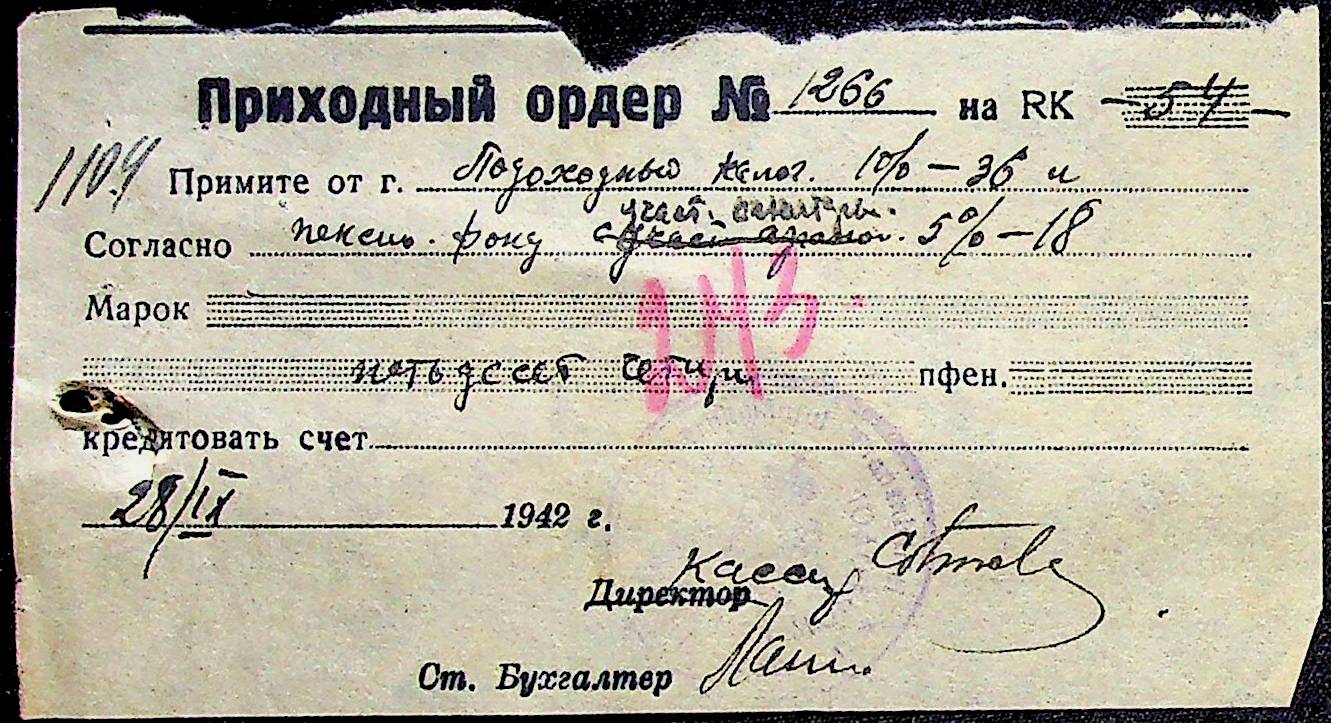 Приходный ордер № 1266 на RK — 54 —
1104
Примите от г. Подоходный налог. 10% — 36 и
Согласно пенсио. фонд с участ. 5% — 18
Марок
петьдесет четири пфен.
кредитовать счет
28/IX 1942 г.
Кассир
Директор
Ст. Бухгалтер